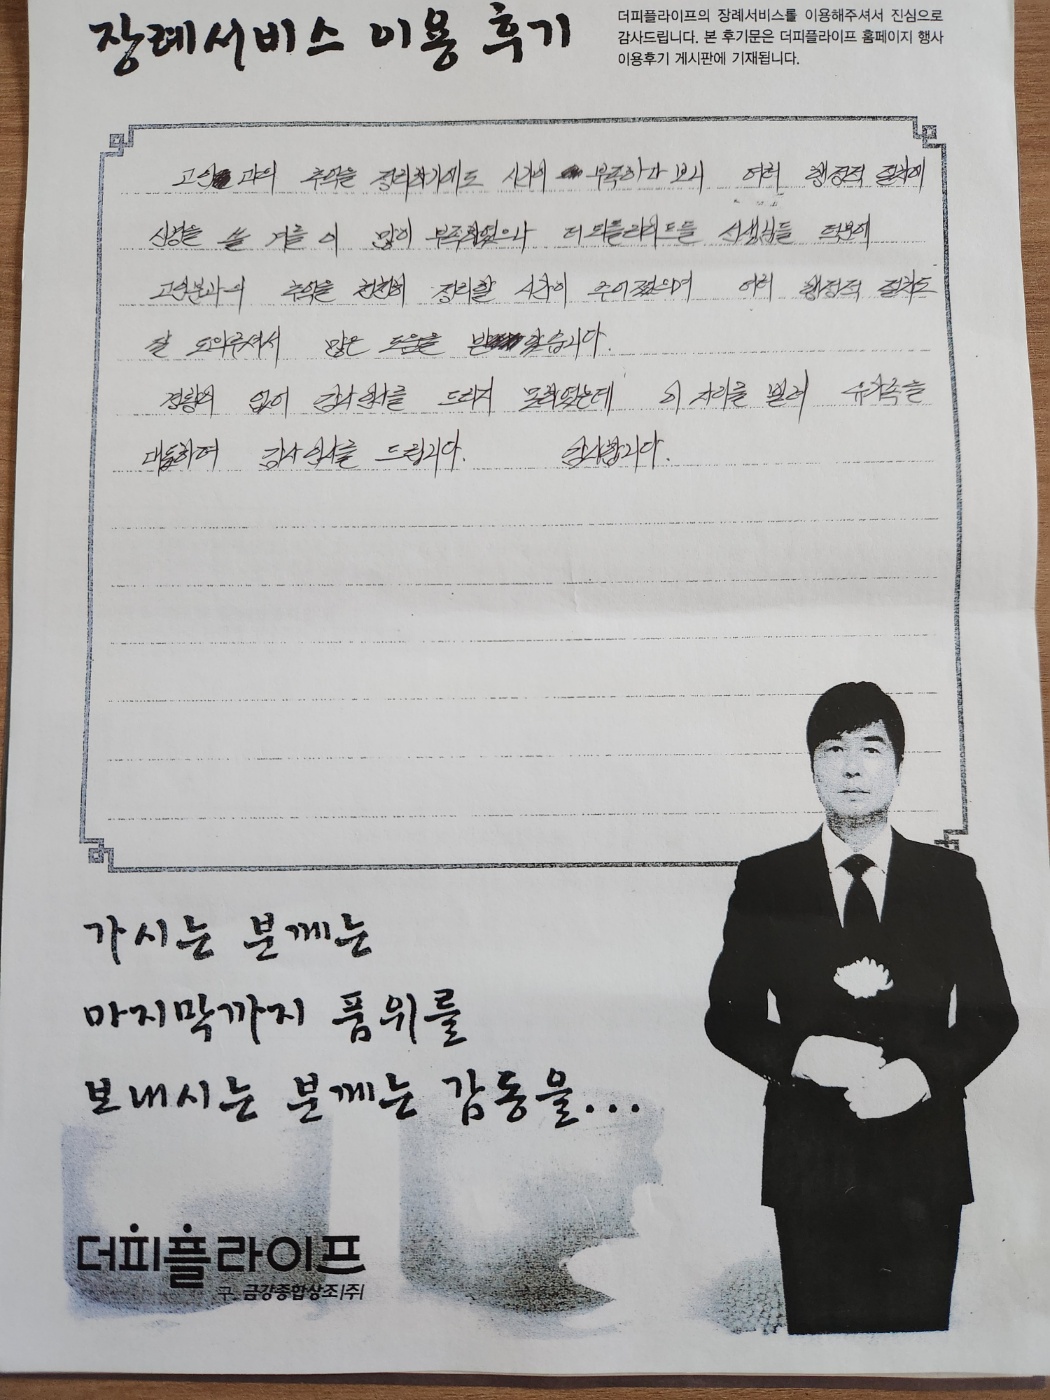 장례서비스 이용 후기
더피플라이프의 장례서비스를 이용해주셔서 진심으로
감사드립니다. 본 후기문은 더피플라이프 홈페이지 행사
이용후기 게시판에 기재됩니다.
고인 과의 추억을 정리하기에도 시간이 부족하다 보니 여러 행정적 절차에
신경을 쓸 겨를 이 많이 부족했으나 더피플라이프 선생님들 덕분에
고인분과의 추억을 천천히 정리할 시간이 주어졌으며 여러 행정적 절차도
잘 도와주셔서 많은 도움을 받 았습니다.
경황이 없어 감사 인사를 드리지 못했었는데 이 자리를 빌려 유가족을
대표하여 감사 인사를 드립니다. 감사합니다.
가시는 분께는
마지막까지 품위를
보내시는 분께는 감동을...
더피플라이프
구. 금강종합상조(주)